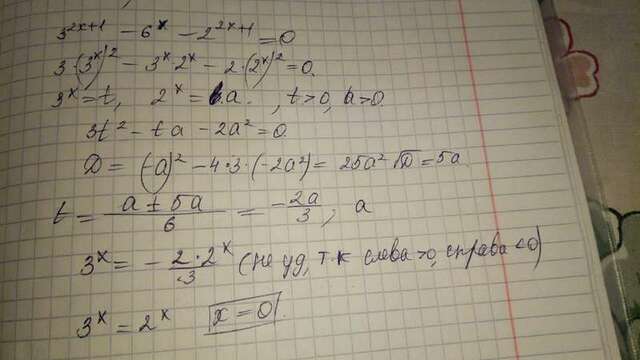 3^{2x+1} - 6^x - 2^{2x+1} = 0
3·(3^x)^2 - 3^x 2^x - 2·(2^x)^2 = 0.
3^x = t, 2^x = a. , t > 0, a > 0.
3t^2 - ta - 2a^2 = 0.
D = (-a)^2 - 4·3·(-2a^2) = 25a^2 √D = 5a
t = \frac{a ± 5a}{6} = -\frac{2a}{3}; a
3^x = -\frac{2·2^x}{3} (не уд, т.к слева >0, справа <0)
3^x = 2^x x = 0.